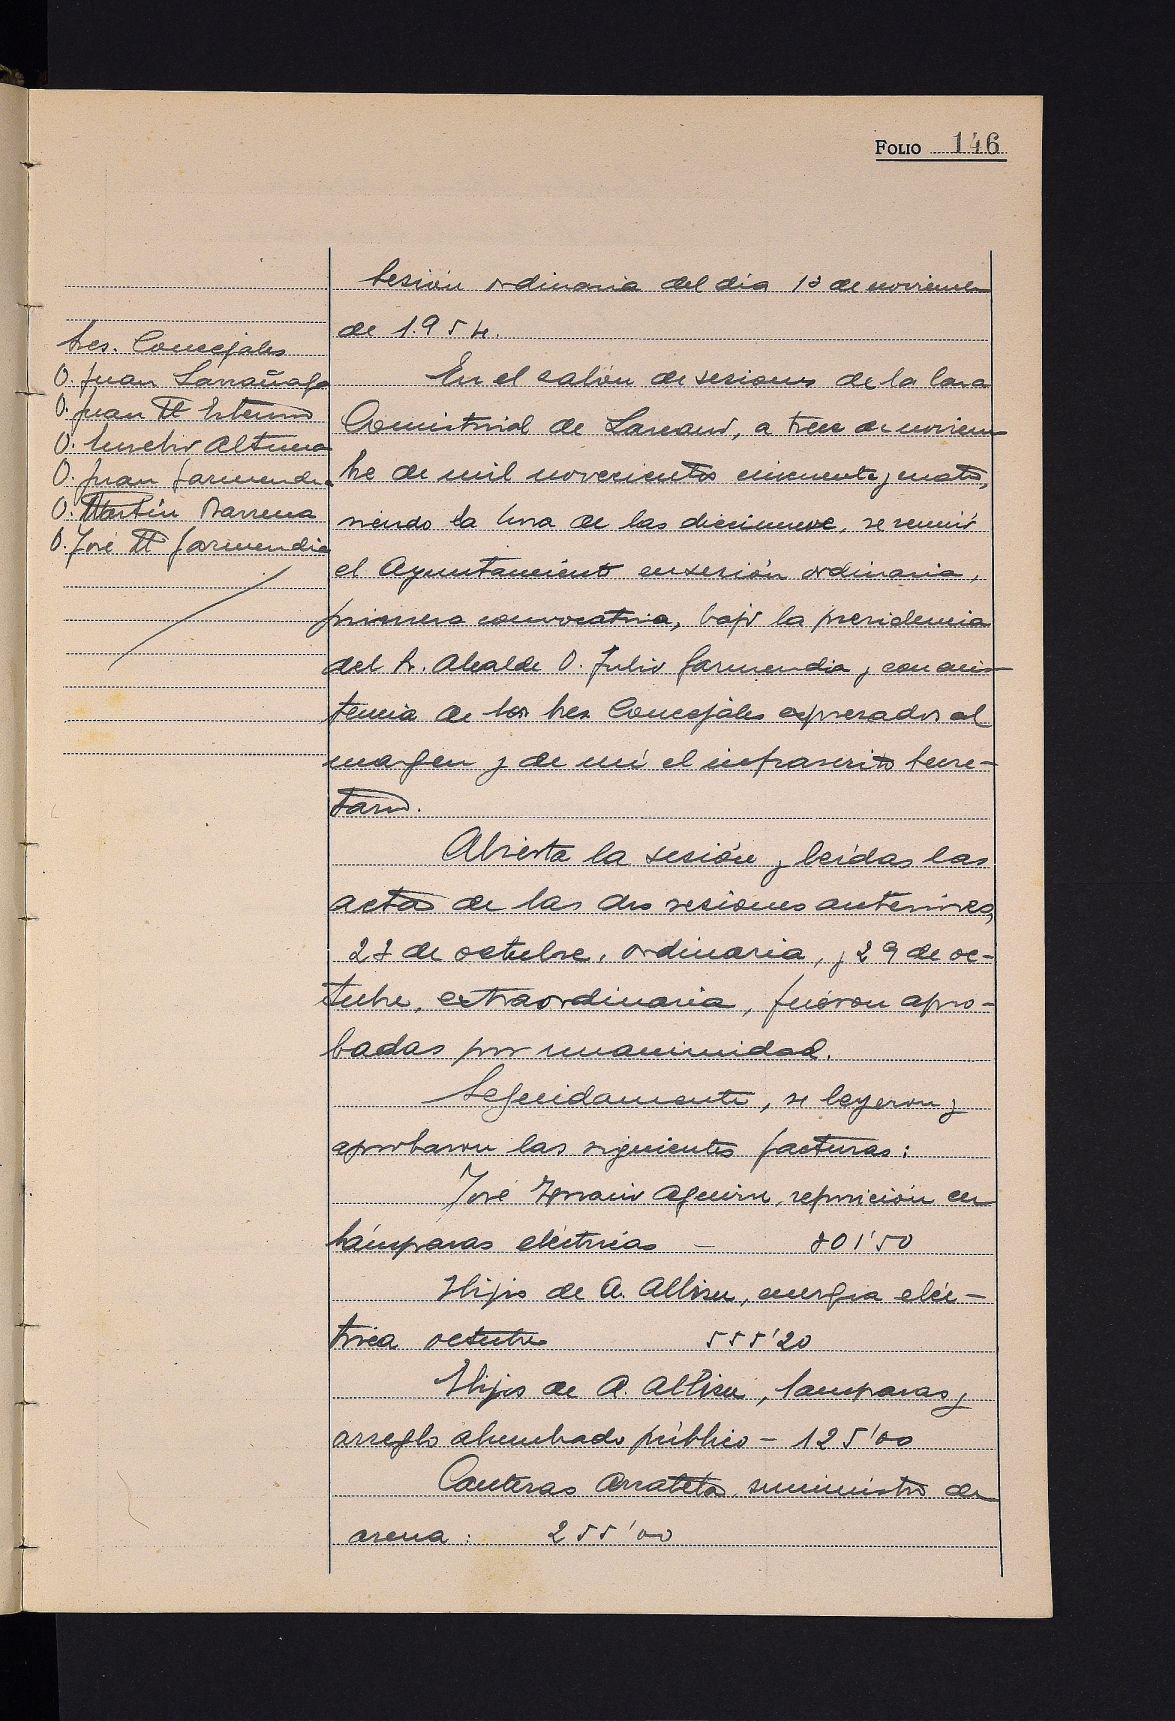 FOLIO 146
Sres. Concejales
D. Juan Larrañaga
D. Juan Mª
D. Eusebio Altuna
D. Juan Garmendia
D. Martín Barrena
D. José Mª Garmendia
Sesión ordinaria del día 13 de noviembre
de 1.954.
En el salón de sesiones de la Casa
Consistorial de Lazcano, a trece de noviem
bre de mil novecientos cincuenta y cuatro,
siendo la hora de las diecinueve, se reunió
el Ayuntamiento en sesión ordinaria,
primera convocatoria, bajo la presidencia
del Sr. Alcalde D. Julio Garmendia y con asis
tencia de los Sres Concejales expresados al
margen y de mí el infrascrito Secre-
tario.
Abierta la sesión y leídas las
actas de las dos sesiones anteriores,
de octubre, ordinaria, y 29 de oc-
tubre, extraordinaria, fueron apro-
badas por unanimidad.
Seguidamente, se leyeron y
aprobaron las siguientes facturas:
José Aguirre, reposición en
lámparas eléctricas - 801'50
Hijos de A. Albisu, energía eléc-
trica octubre 555'20
Hijos de A. Albisu, lamparas y
arreglo alumbrado público - 125'00
Canteras Arrateta, suministro de
arena: 255'00